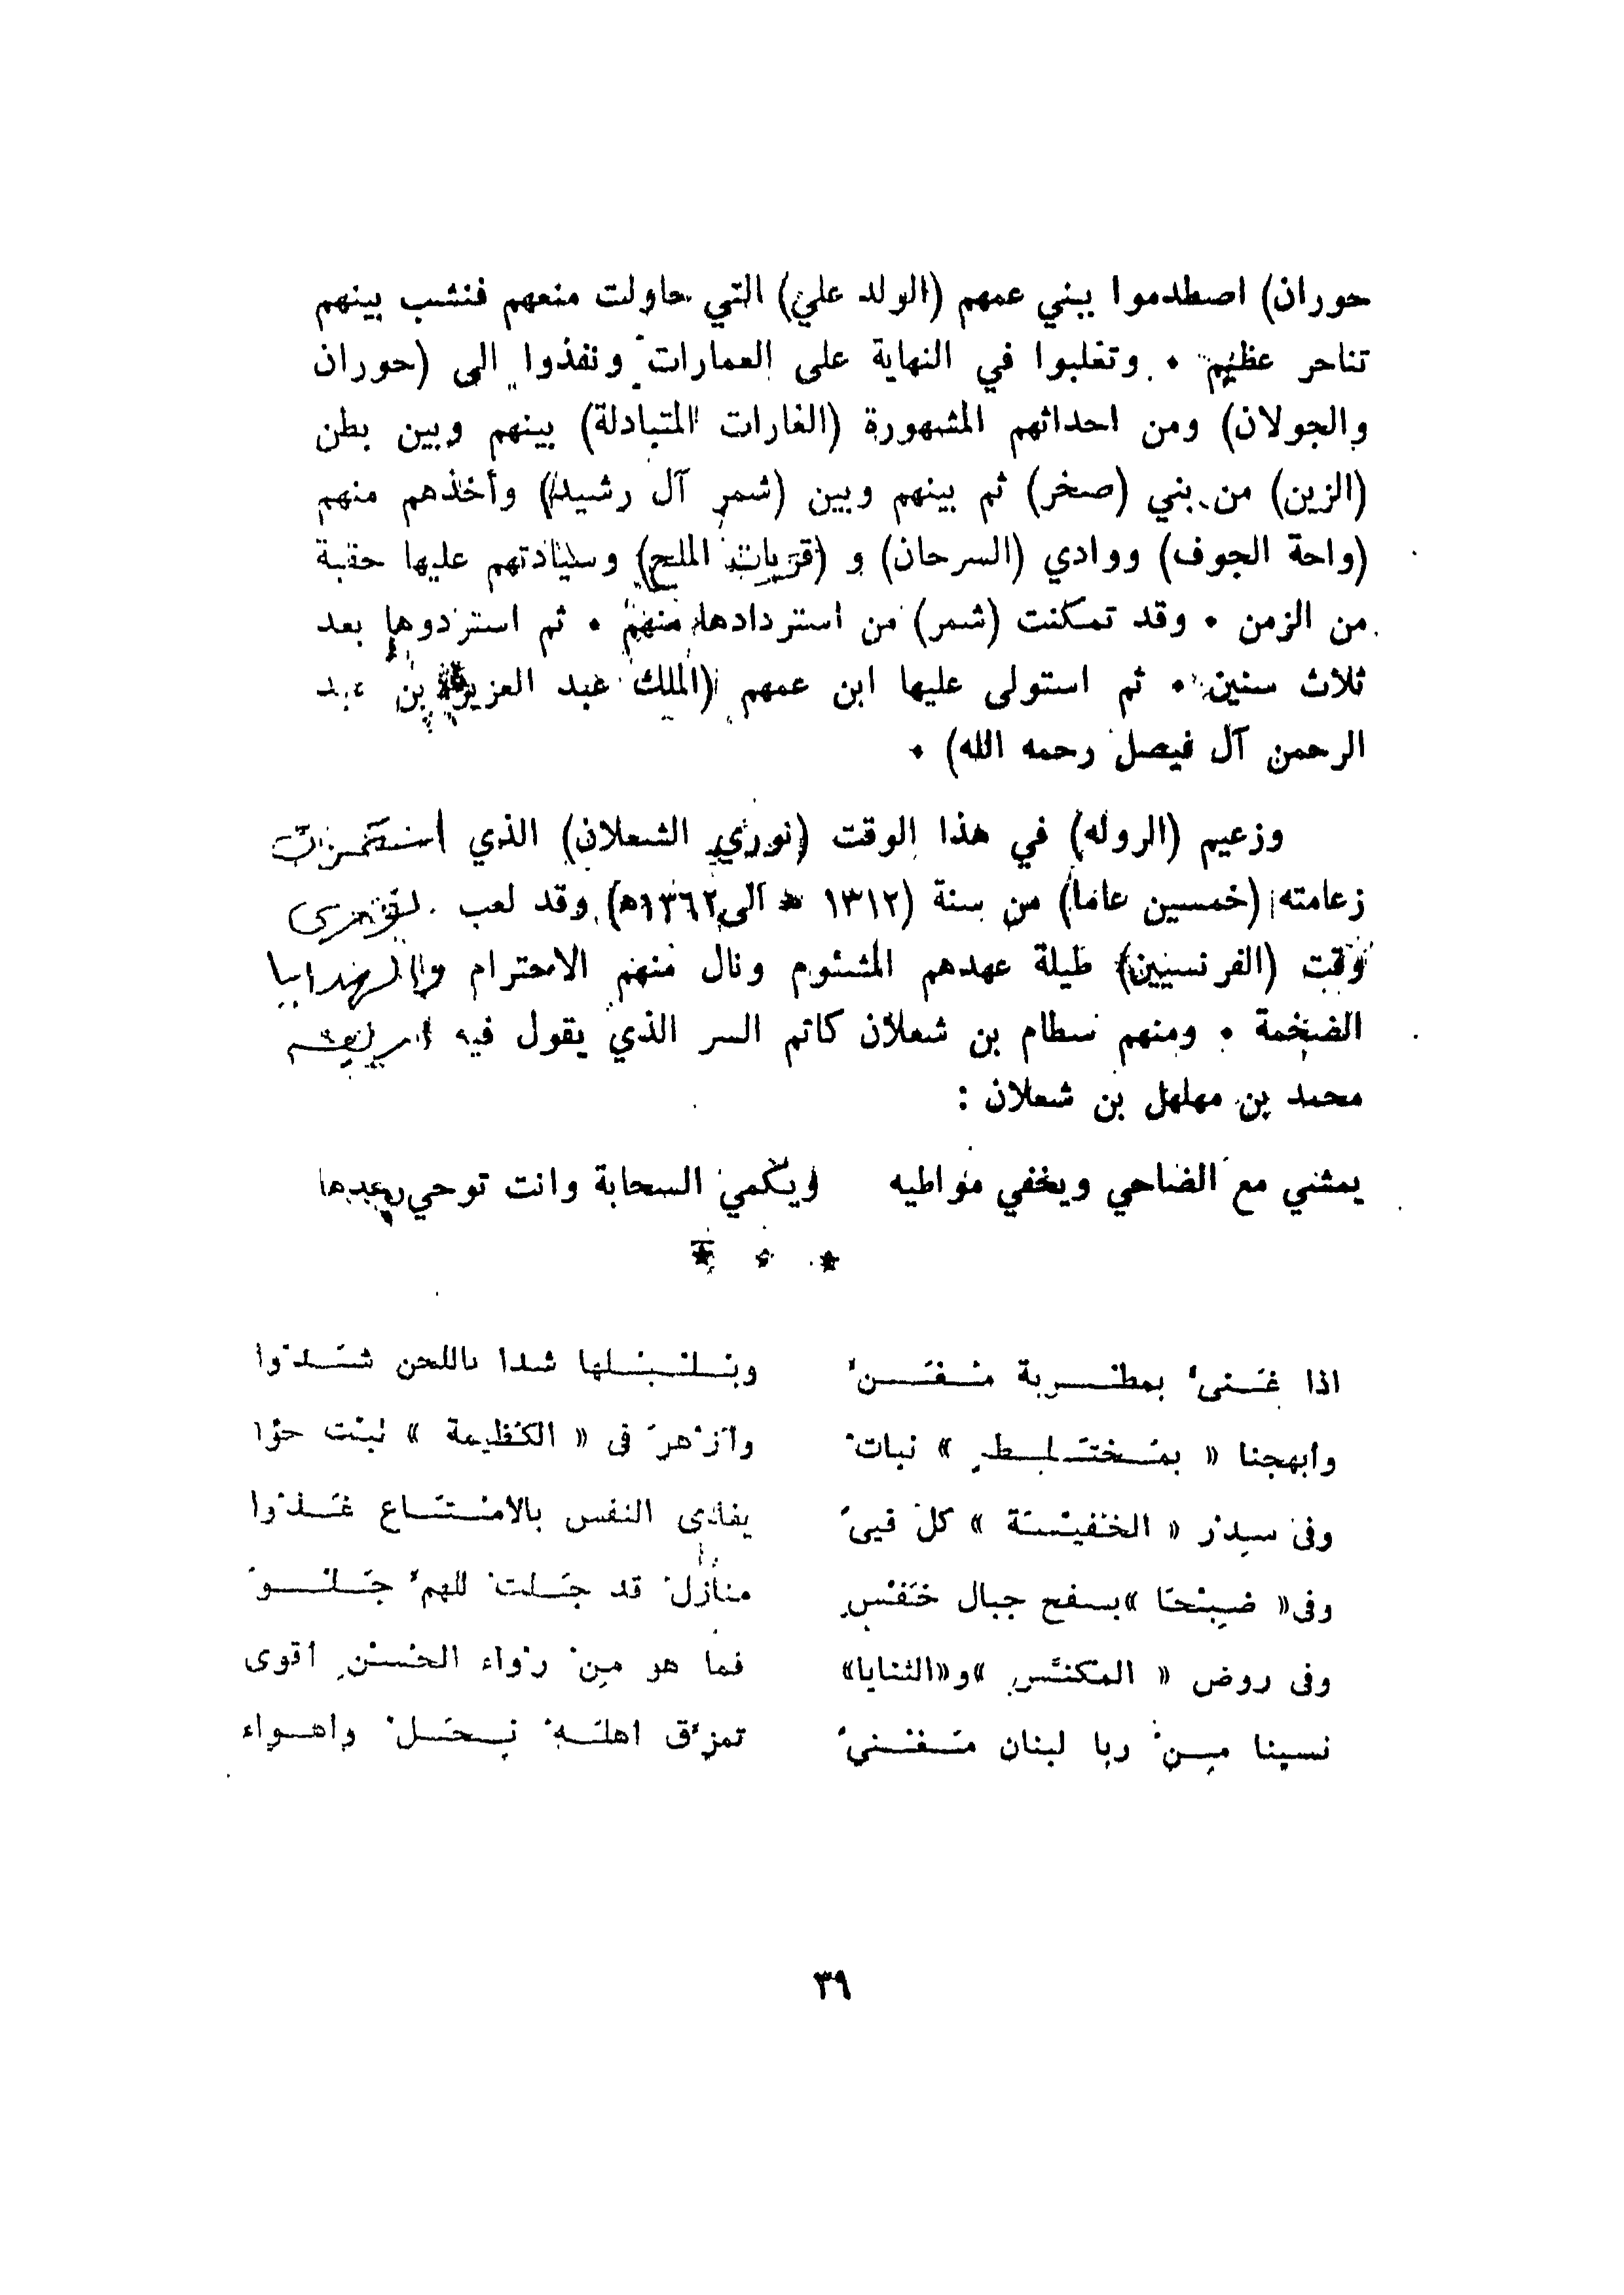 حوران) اصطدموا ببني عمهم (الولد علي) التي حاولت منعهم فنشب بينهم
تناحر عظيم • وتغلبوا في النهاية على العمارات ونفذوا الى (حوران
والجولان) ومن احداثهم المشهورة (الغارات المتبادلة) بينهم وبين بطن
(الزين) من بني (صخر) ثم بينهم وبين (شمر آل رشيد) وأخذهم منهم
(واحة الجوف) ووادي (السرحان) و (قريات الملح) وسيادتهم عليها حقبة
من الزمن • وقد تمكنت (شمر) من استردادها منهم • ثم استردوها بعد
ثلاث سنين • ثم استولى عليها ابن عمهم (الملك عبد العزيز بن عبد
الرحمن آل فيصل رحمه الله) •
وزعيم (الروله) في هذا الوقت (نوري الشعلان) الذي استمرت
زعامته (خمسين عاما) من سنة (١٣١٢ هـ الى ١٣٦٢هـ) وقد لعب
وقت (الفرنسيين) طيلة عهدهم المشئوم ونال منهم الاحترام والهدايا
الضخمة • ومنهم سطام بن شعلان كاتم السر الذي يقول فيه
محمد بن مهلهل بن شعلان :
يمشي مع الضاحي ويخفي مواطيه ويكمي السحابة وانت توحي رعدها
* * *
اذا غَنىَّ بمطربة مُفَنٌ وبلبلها شدا باللحن شَدْوا
وابهجنا « بمُختَلِطٍ » نباتٌ وأزْهرَ فى « الكظيمة » نبْت حوَّا
وفى سِدْر « الخفيسَة » كلُ فيىءً يفادى النفس بالامْتَاع غَذْوا
وفى« ضبْحَا »بسفح جبال خَفْسٍ منازلُ قد جَلتْ للهمِّ جَلْوَ
وفى روض « المكنَّس »و«الثنايا» فما هو مِنْ رُواء الحُسْنِ أقوى
نسينا مِنْ ربا لبنان مَغْنىً تمزَّق اهلَهُ نِحَلٌ واهواء
٣٩